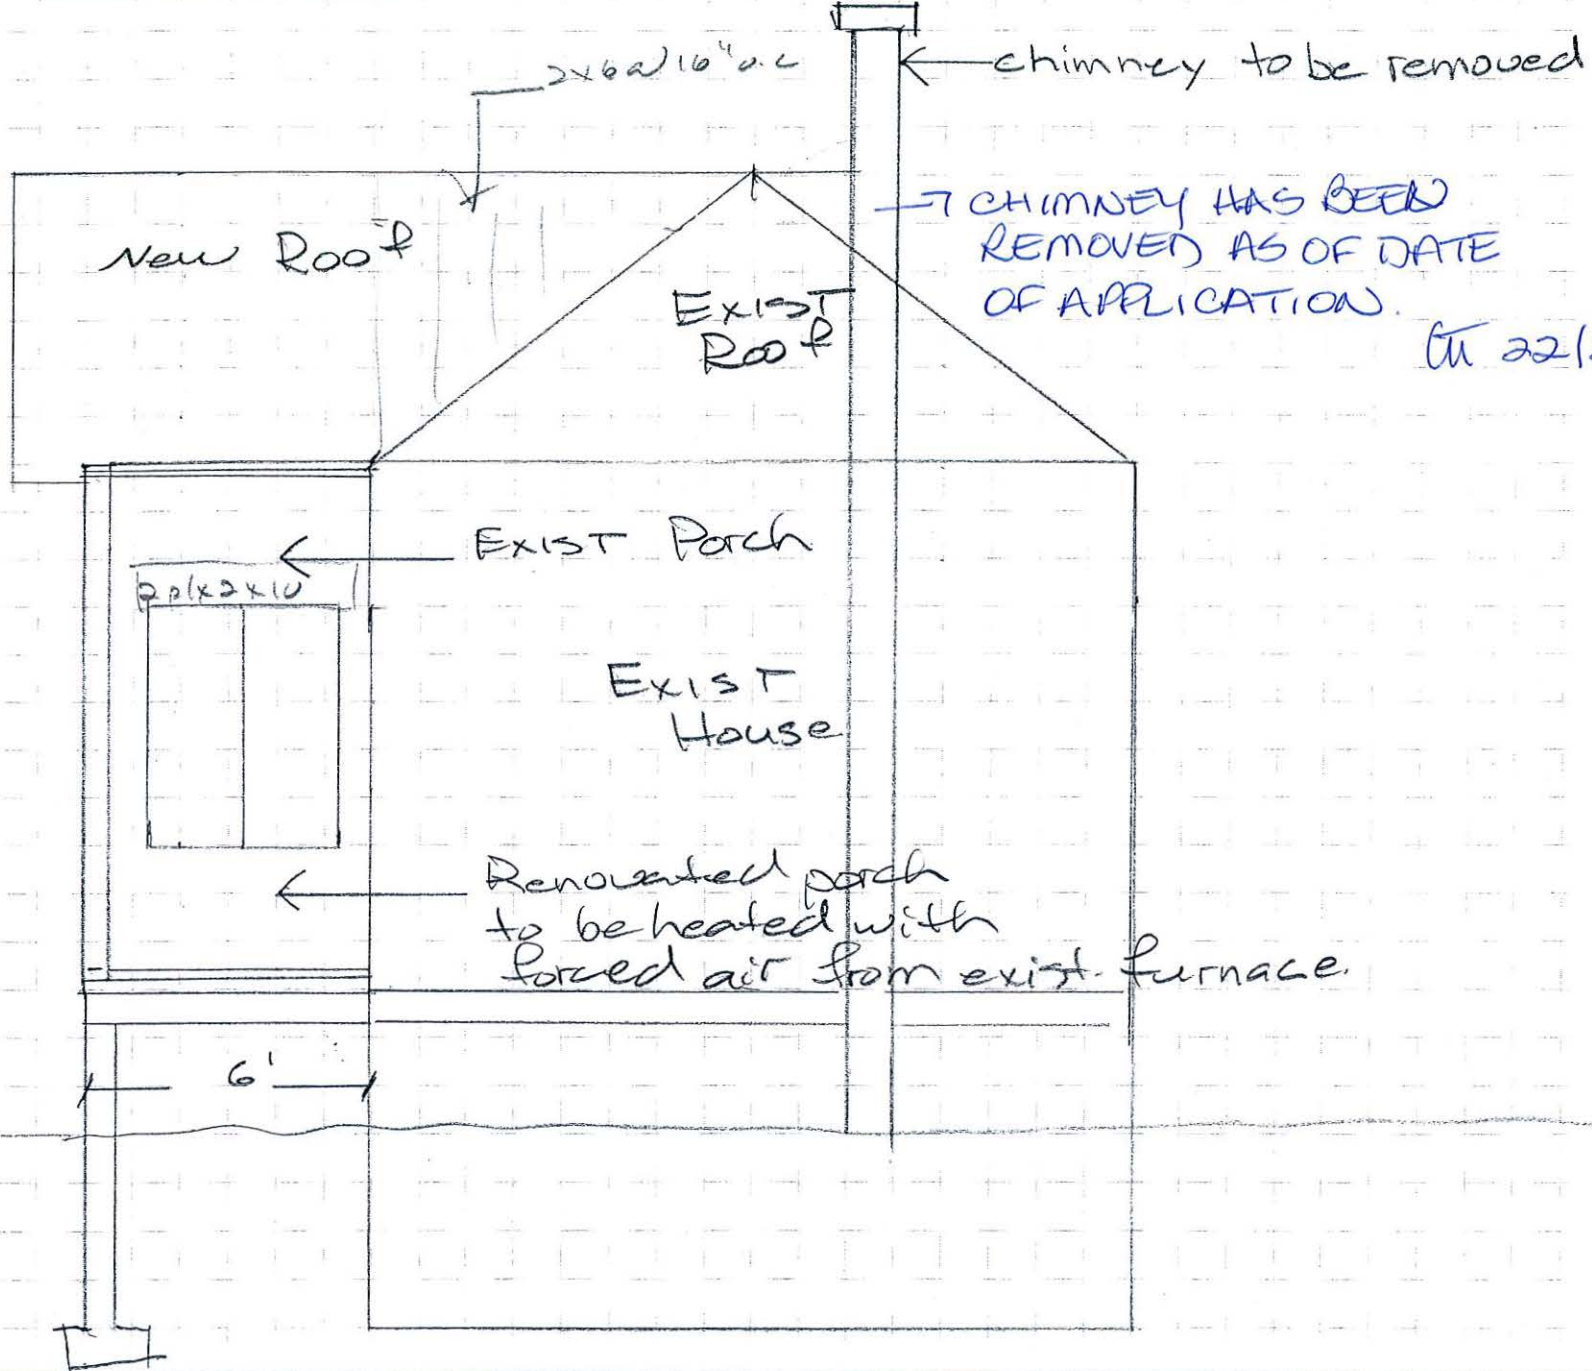 2x6 @ 16" o.c
chimney to be removed
CHIMNEY HAS BEEN
REMOVED AS OF DATE
OF APPLICATION.
22/
New Roof
Exist
Roof
Exist Porch
2 plx2x10
Exist
House
Renovated porch
to be heated with
forced air from exist. furnace.
6'